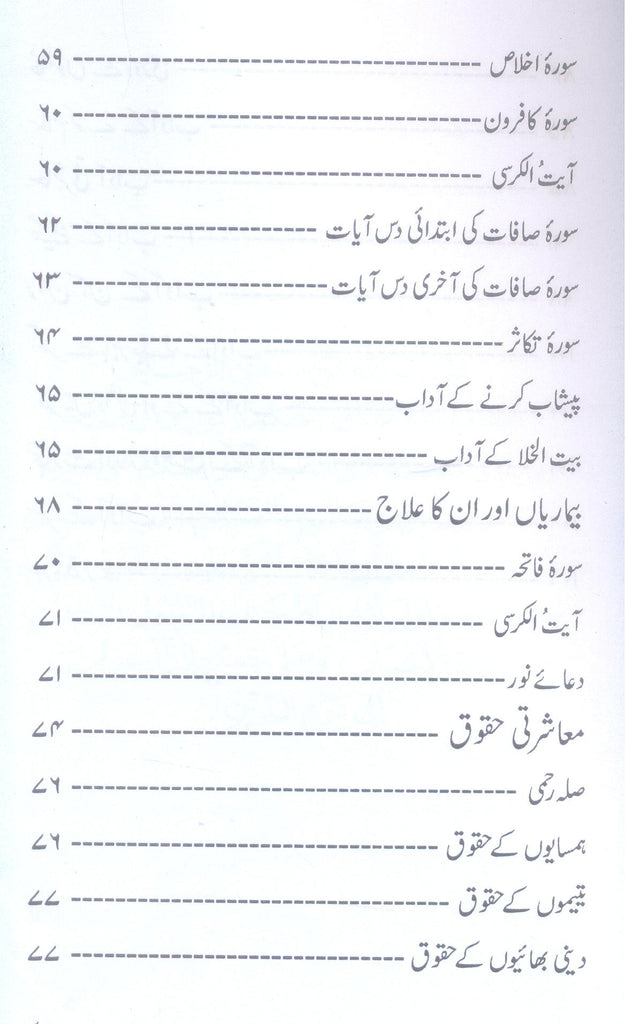 سورۂ اخلاص ------------------------------ ۵۹
سورۂ کافرون ------------------------------ ۶۰
آیتُ الکرسی ------------------------------ ۶۰
سورۂ صافات کی ابتدائی دس آیات ------------------ ۶۲
سورۂ صافات کی آخری دس آیات ------------------- ۶۳
سورۂ تکاثر -------------------------------- ۶۴
پیشاب کرنے کے آداب ------------------------ ۶۵
بیت الخلا کے آداب -------------------------- ۶۵
بیماریاں اور ان کا علاج ---------------------- ۶۸
سورۂ فاتحہ -------------------------------- ۷۰
آیتُ الکرسی ------------------------------ ۷۱
دعائے نور -------------------------------- ۷۱
معاشرتی حقوق --------------------------- ۷۴
صلہ رحمی --------------------------------- ۷۶
ہمسایوں کے حقوق --------------------------- ۷۶
یتیموں کے حقوق ---------------------------- ۷۷
دینی بھائیوں کے حقوق ------------------------- ۷۷